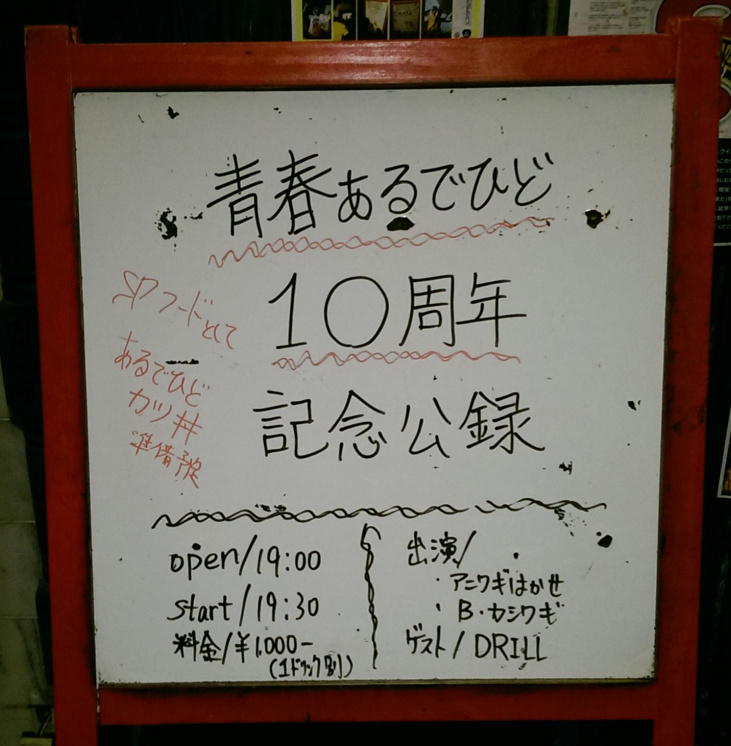 青春あるでひど
10周年
記念公録
SPフードとして
あるでひど
カツ丼
準備予定
open/19:00
start/19:30
料金/¥1.000-
(1ドリンク別)
出演/
・アニワギはかせ
・B・カシワギ
ゲスト/DRILL